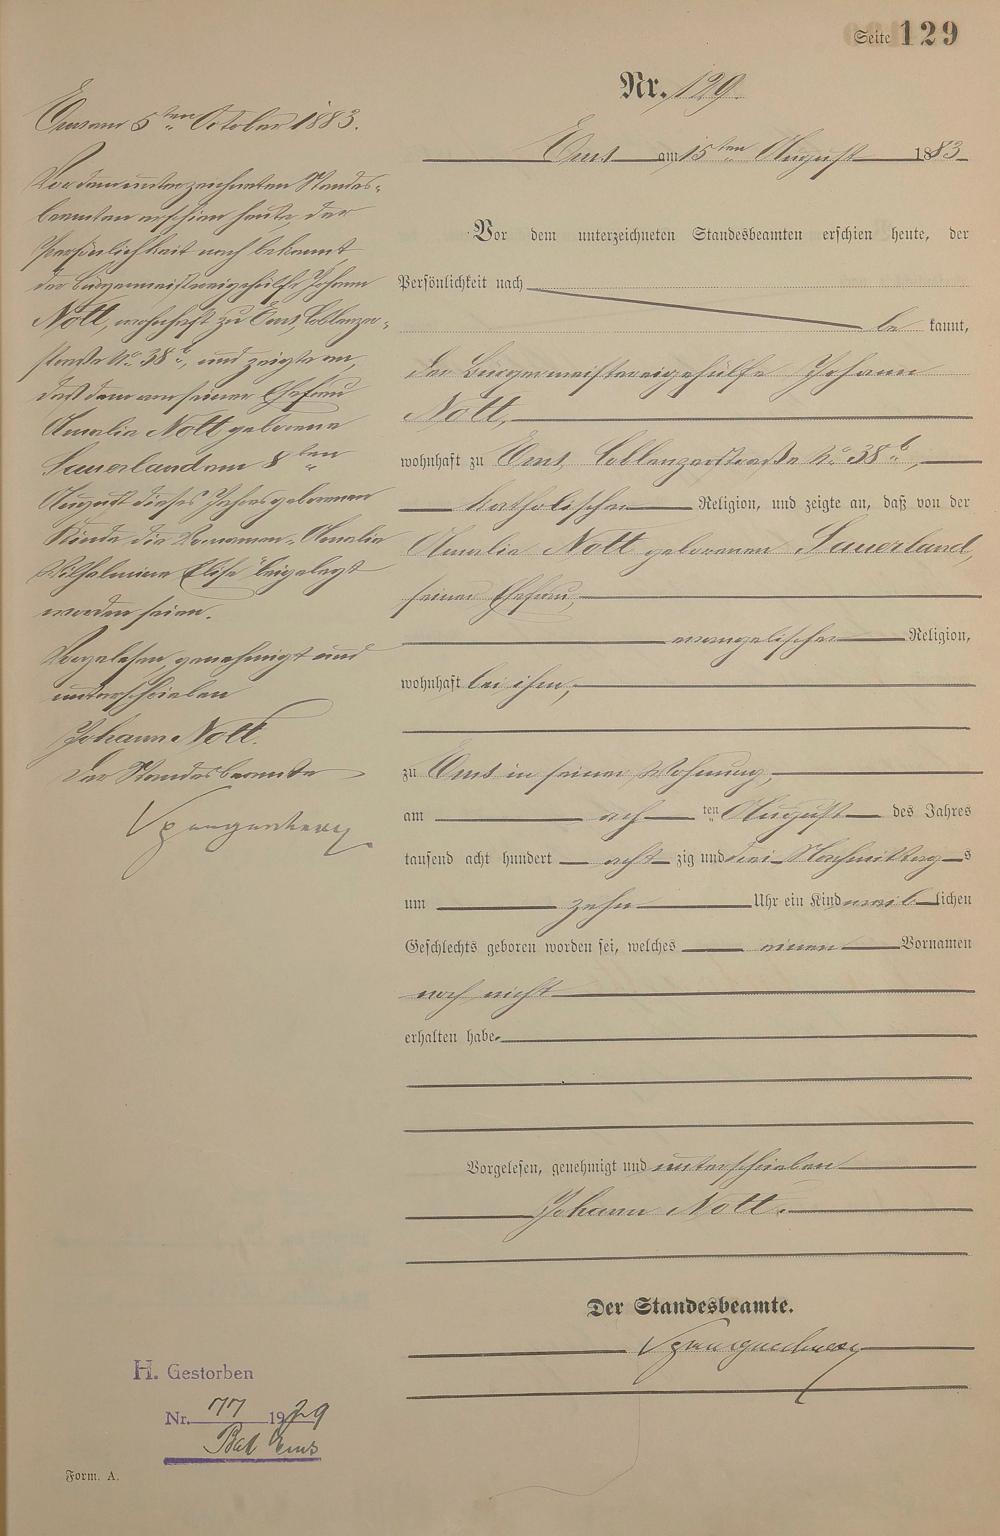 Seite 129
Nr. 129.
Ems am 15ten August 1883
Vor dem unterzeichneten Standesbeamten erschien heute, der
Persönlichkeit nach
be kannt,
der Bürgermeistereigehülfe Johann
Nott,
wohnhaft zu Ems, Coblenzerstraße No. 38b,
katholischer Religion, und zeigte an, daß von der
Amalie Nott geborenen Sauerland,
seiner Ehefrau,
evangelischer Religion,
wohnhaft bei ihm,
zu Ems in seiner Wohnung,
am ach ten August des Jahres
tausend acht hundert acht zig und drei Nachmittag s
um zehn Uhr ein Kind weib lichen
Geschlechts geboren worden sei, welches einen Vornamen
noch nicht
erhalten habe.
Vorgelesen, genehmigt und unterschrieben
Johann Nott.
Der Standesbeamte.
Ems am 5ten October 1883.
Vor dem unterzeichneten Standes-
beamten erschien heute, der
Persönlichkeit nach bekannt,
der Bürgermeistereigehülfe Johann
Nott, wohnhaft zu Ems, Coblenzer-
straße No. 38b, und zeigte an,
daß dem von seiner Ehefrau
Amalie Nott geborene
Sauerland am 8ten
August dieses Jahres geborenen
Kinde die Vornamen "Amalie
Wilhelmine Elise" beigelegt
worden seien.
Vorgelesen, genehmigt und
unterschrieben
Johann Nott.
Der Standesbeamte
H. Gestorben
Nr. 77 1929
Bad Ems
Form. A.